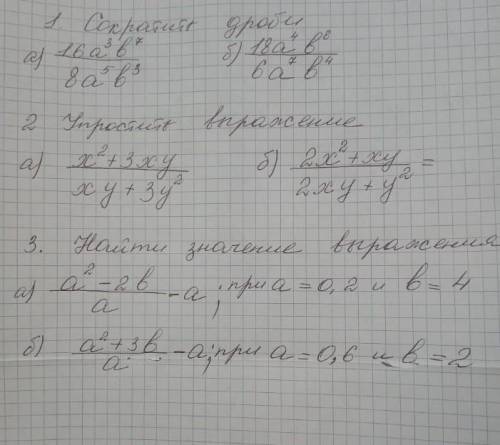 1. Сократить дроби
а) 16a³b⁷ / 8a⁵b³ б) 18a⁴b⁶ / 6a⁷b⁴
2 Упростить выражение
а) x²+3xy / xy+3y² б) 2x²+xy / 2xy+y² =
3. Найти значение выражения
а) a²-2b / a - a; при a=0,2 и b=4
б) a²+3b / a - a; при a=0,6 и b=2